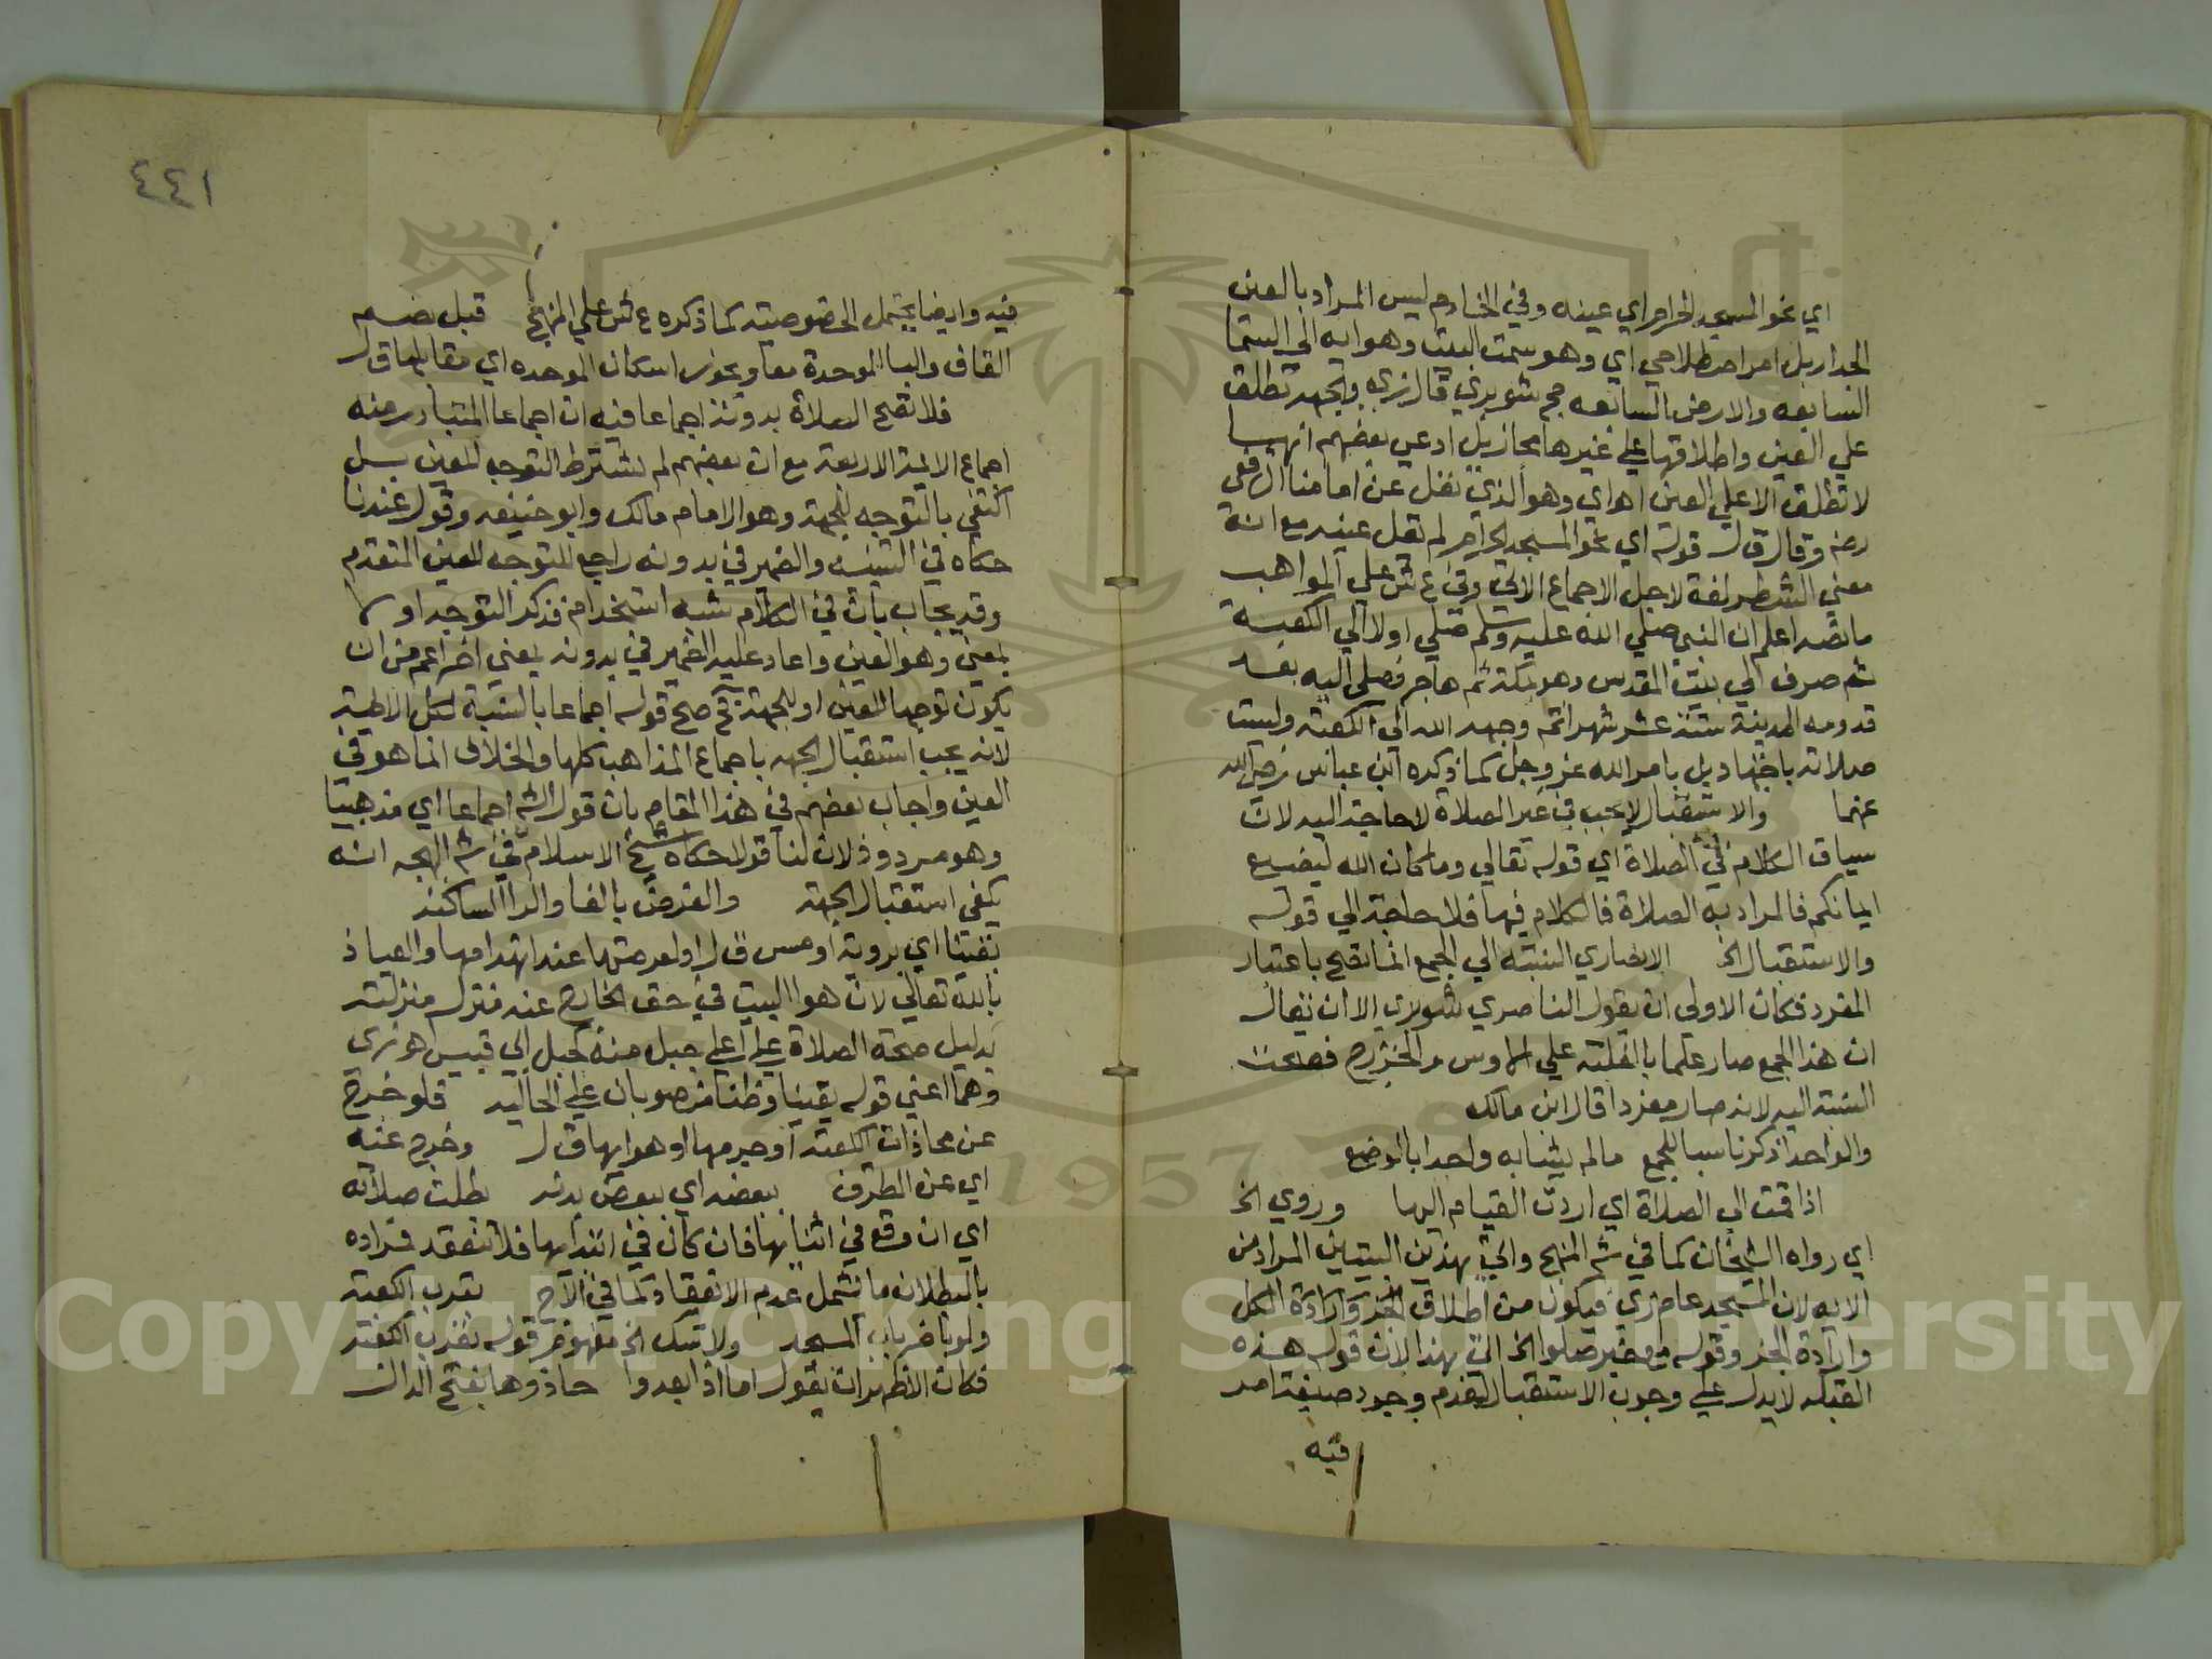 اي نحو المسجد الحرام اي عينه وفي الخادم ليس المراد بالعين
الجدار بل امر اصطلاحي اي وهو سمت البيت وهوايه الي السما
السابعه والارض السابعه م ر شوبري قال زي والجهة تطلق
علي العين واطلاقها علي غيرها مجاز بل ادعي بعضهم انها
لا تطلق الا علي العين اه اي وهو الذي نقل عن امامنا الرفعي
رضه وقال ق ل قوله اي نحو المسجد الحرام لم تقل عينه مع انه
معني الشطر لغة لاجل الاجماع الاتي وفي ع ش علي المواهب
ما نصه اعلم ان النبي صلي الله عليه وسلم صلي اولا الي الكعبة
ثم صرف الي بيت المقدس وهو بمكة ثم هاجر فصلي اليه بعد
قدومه المدينة ستة عشر شهرا ثم وجهه الله الي الكعبة وليست
صلاته باجتهاد بل بامر الله عز وجل كما ذكره ابن عباس رضي الله
عنهما والاستقبال لا يجب في غير الصلاة لا حاجة اليه لان
سياق الكلام في الصلاة اي قوله تعالي وما كان الله ليضيع
ايمانكم فالمراد به الصلاة فالكلام فيها فلا حاجة الي قوله
والاستقبال الخ الانصاري النسبة الي الجمع انما تصح باعتبار
المفرد فكان الاولي ان يقول الناصري الا ان يقال
ان هذا الجمع صار علما بالغلبة علي الاوس والخزرج فصحت
النسبة اليه لانه صار مفردا قال ابن مالك
والواحد اذكر ناسبا للجمع ما لم يشابه واحدا بالوضع
اذا قمت الي الصلاة اي اردت القيام اليها وروي الخ
اي رواه الشيخان كما في شم المنهج واتي بهذين البيتين المراد من
الايه لان المسجد عام زي فيكون من اطلاق الجزء وارادة الكل
وارادة الجزء وقوله مع خبر صلوا الخ اتي بهذا لان قوله هذه
القبلة لا يدل علي وجوب الاستقبال لعدم وجود صيغة امر
فيه
٤٤١
فيه وايضا يحتمل الخصوصية كما ذكره ع ش علي المنهج قبل بضم
القاف والبا الموحدة معا ويجوز اسكان الموحده اي مقابلها ق ل
فلا تصح الصلاة بدونه اجماعا فيه ان اجماعا المتبادر منه
اجماع الايمة الاربعة مع ان بعضهم لم يشترط التوجه للعين بل
اكتفي بالتوجه للجهة وهو الامام مالك وابو حنيفة وقول عندنا
حكاه في التنبيه والضمير في بدونه راجع للتوجه للعين المتقدم
وقد يجاب بان في الكلام شبه استخدام فذكر التوجه اولا
بمعني وهو العين واعاد عليه الضمير في بدونه بمعني اخر اعم من ان
يكون توجها للعين او للجهة فح صح قوله اجماعا بالنسبة لكل الايمة
لانه يجب استقبال الجهة باجماع المذاهب كلها والخلاف انما هو في
العين واجاب بعضهم في هذا المقام بان قول الشه اجماعا اي مذهبيا
وهو مردود لان لنا قولا حكاه شيخ الاسلام في شم البهجه انه
يكفي استقبال الجهة والفرض بالفا والرا الساكنه
يقينا اي بروية او مس ق ل او لعرصتها عند انهدامها والعياذ
بالله تعالي لان هوا البيت في حق الخارج عنه منزل منزلته
بدليل صحة الصلاة علي اعلي جبل منه كجبل ابي قبيس اه زي
وهما اعني قوله يقينا وظنا منصوبان علي الحاليه فلو خرج
عن محاذات الكعبة او جرمها او هوايها ق ل وخرج عنه
اي عن الطرف ببعضه اي ببعض بدنه بطلت صلاته
اي ان وقع في اثنايها فان كان في ابتدايها فلا تنعقد فمراده
بالبطلان ما يشمل عدم الانعقاد كما في الاج بقرب الكعبة
ولو باخريات المسجد ولا شك الخ مفهوم قوله بقرب الكعبة
فكان الاظهر ان يقول اما اذا بعدوا حاذوها بفتح الذال